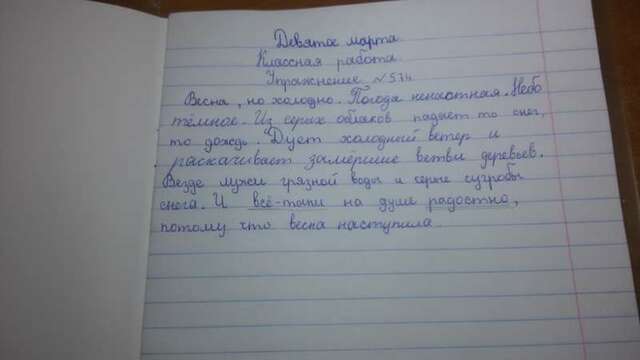 Девятое марта.
Классная работа.
Упражнение №574
Весна, но холодно. Погода ненастная. Небо
тёмное. Из серых облаков падает то снег,
то дождь. Дует холодный ветер и
раскачивает замерзшие ветви деревьев.
Везде лужи грязной воды и серые сугробы
снега. И всё-таки на душе радостно,
потому что весна наступила.